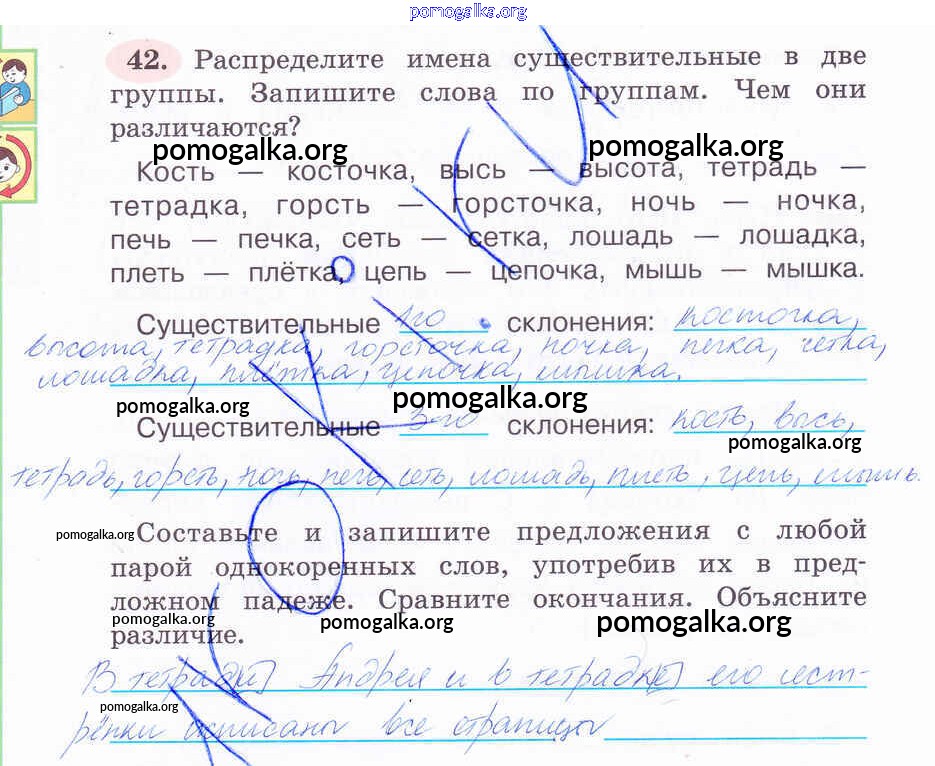 pomogalka.org
42. Распределите имена существительные в две
группы. Запишите слова по группам. Чем они
различаются?
pomogalka.org pomogalka.org
Кость — косточка, высь — высота, тетрадь —
тетрадка, горсть — горсточка, ночь — ночка,
печь — печка, сеть — сетка, лошадь — лошадка,
плеть — плётка, цепь — цепочка, мышь — мышка.
Существительные 1-го склонения: косточка,
высота, тетрадка, горсточка, ночка, печка, сетка,
лошадка, плётка, цепочка, мышка.
pomogalka.org pomogalka.org
Существительные 3-го склонения: кость, высь,
pomogalka.org
тетрадь, горсть, ночь, печь, сеть, лошадь, плеть, цепь, мышь.
pomogalka.org Составьте и запишите предложения с любой
парой однокоренных слов, употребив их в пред-
ложном падеже. Сравните окончания. Объясните
pomogalka.org pomogalka.org pomogalka.org
различие.
В тетрад[и] Андрея и в тетрадк[е] его сест-
pomogalka.org
рёнки исписаны все страницы